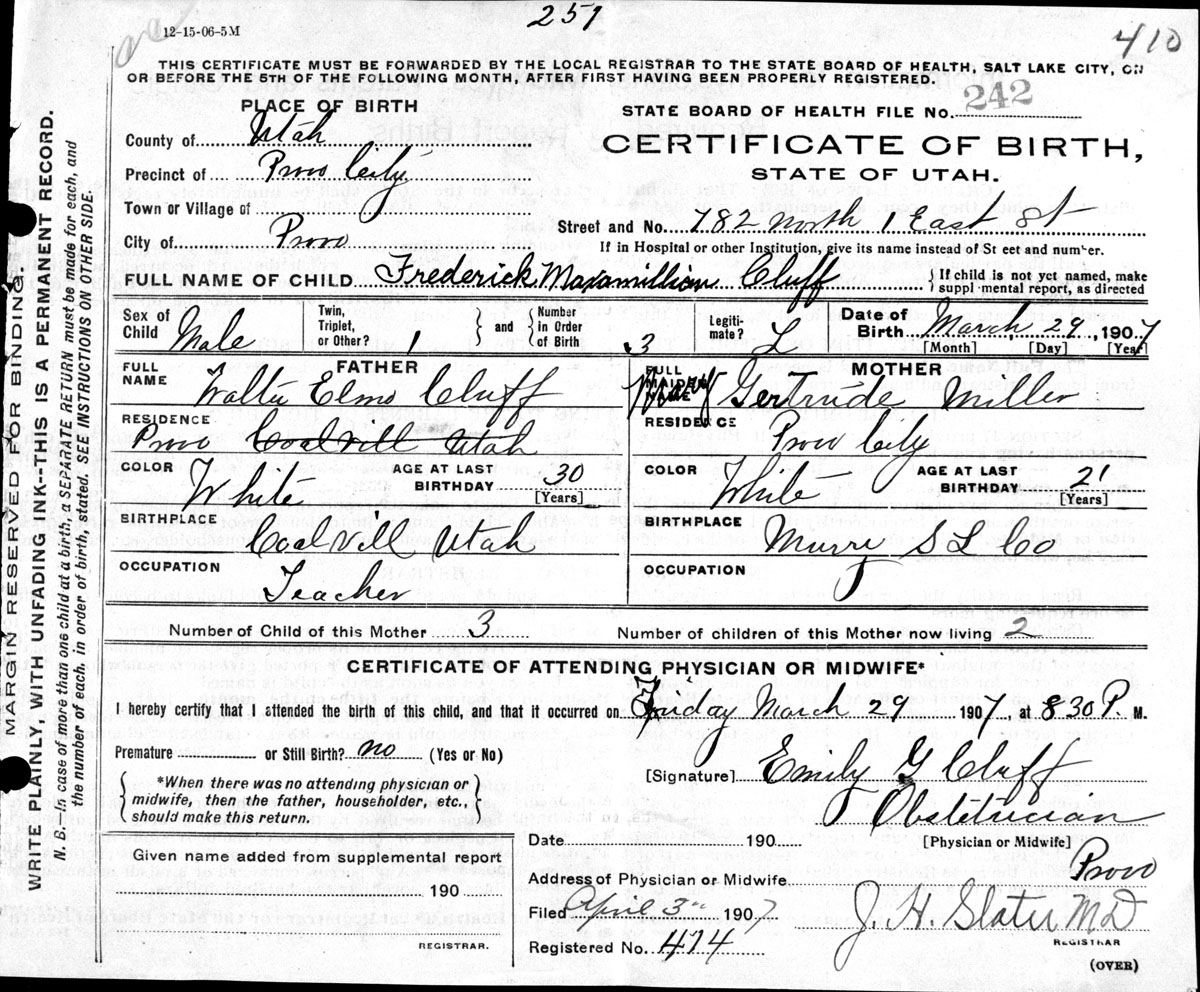 251
12-15-06-5M
410
THIS CERTIFICATE MUST BE FORWARDED BY THE LOCAL REGISTRAR TO THE STATE BOARD OF HEALTH, SALT LAKE CITY, ON
OR BEFORE THE 5TH OF THE FOLLOWING MONTH, AFTER FIRST HAVING BEEN PROPERLY REGISTERED.
PLACE OF BIRTH
County of Utah
Precinct of Provo City
Town or Village of
City of Provo
STATE BOARD OF HEALTH FILE No. 242
CERTIFICATE OF BIRTH,
STATE OF UTAH.
Street and No. 782 North 1 East St
If in Hospital or other Institution, give its name instead of St eet and number.
FULL NAME OF CHILD Frederick Maxamillian Cluff
If child is not yet named, make
suppl mental report, as directed
Sex of Child Male
Twin, Triplet, or Other? 1
and
Number in Order of Birth 3
Legiti- mate? L
Date of Birth March, 29, 1907
[Month] [Day] [Year]
FATHER
FULL NAME Walter Elmo Cluff
RESIDENCE Provo Coalvill Utah
COLOR White
AGE AT LAST BIRTHDAY 30
[Years]
BIRTHPLACE Coalvill Utah
OCCUPATION Teacher
MOTHER
FULL MAIDEN NAME Gertrude Miller
RESIDENCE Provo City
COLOR White
AGE AT LAST BIRTHDAY 21
[Years]
BIRTHPLACE Murry S L Co
OCCUPATION
Number of Child of this Mother 3
Number of children of this Mother now living 2
CERTIFICATE OF ATTENDING PHYSICIAN OR MIDWIFE*
I hereby certify that I attended the birth of this child, and that it occurred on Friday March 29 1907, at 8 30 P. M.
Premature or Still Birth? no (Yes or No)
*When there was no attending physician or
midwife, then the father, householder, etc.,
should make this return.
[Signature] Emily G Cluff
Obstetrician
Date 190
[Physician or Midwife]
Given name added from supplemental report
190
REGISTRAR.
Address of Physician or Midwife Provo
Filed April 3rd 1907
J. H. Slater MD
REGISTRAR
Registered No. 474
(OVER)
MARGIN RESERVED FOR BINDING.
WRITE PLAINLY, WITH UNFADING INK--THIS IS A PERMANENT RECORD.
N. B.--In case of more than one child at a birth, a SEPARATE RETURN must be made for each, and
the number of each, in order of birth, stated. SEE INSTRUCTIONS ON OTHER SIDE.